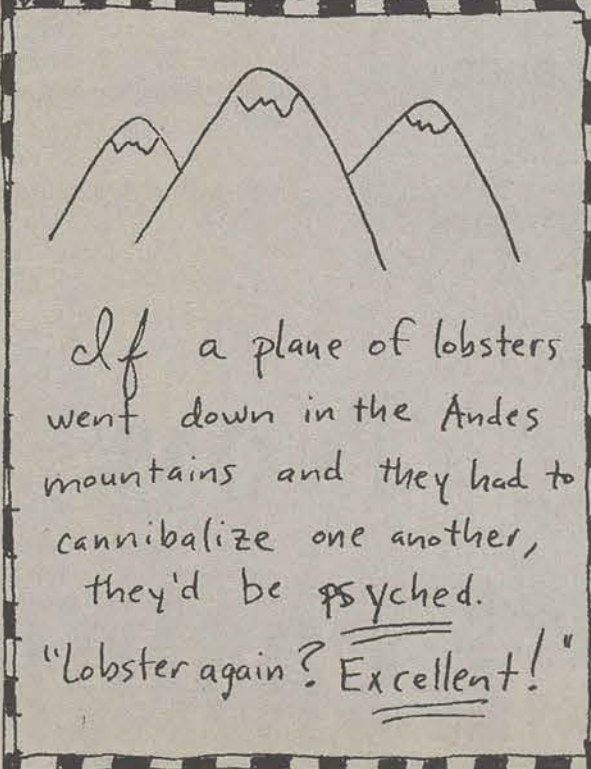 If a plane of lobsters
went down in the Andes
mountains and they had to
cannibalize one another,
they'd be psyched.
"Lobster again? Excellent!"